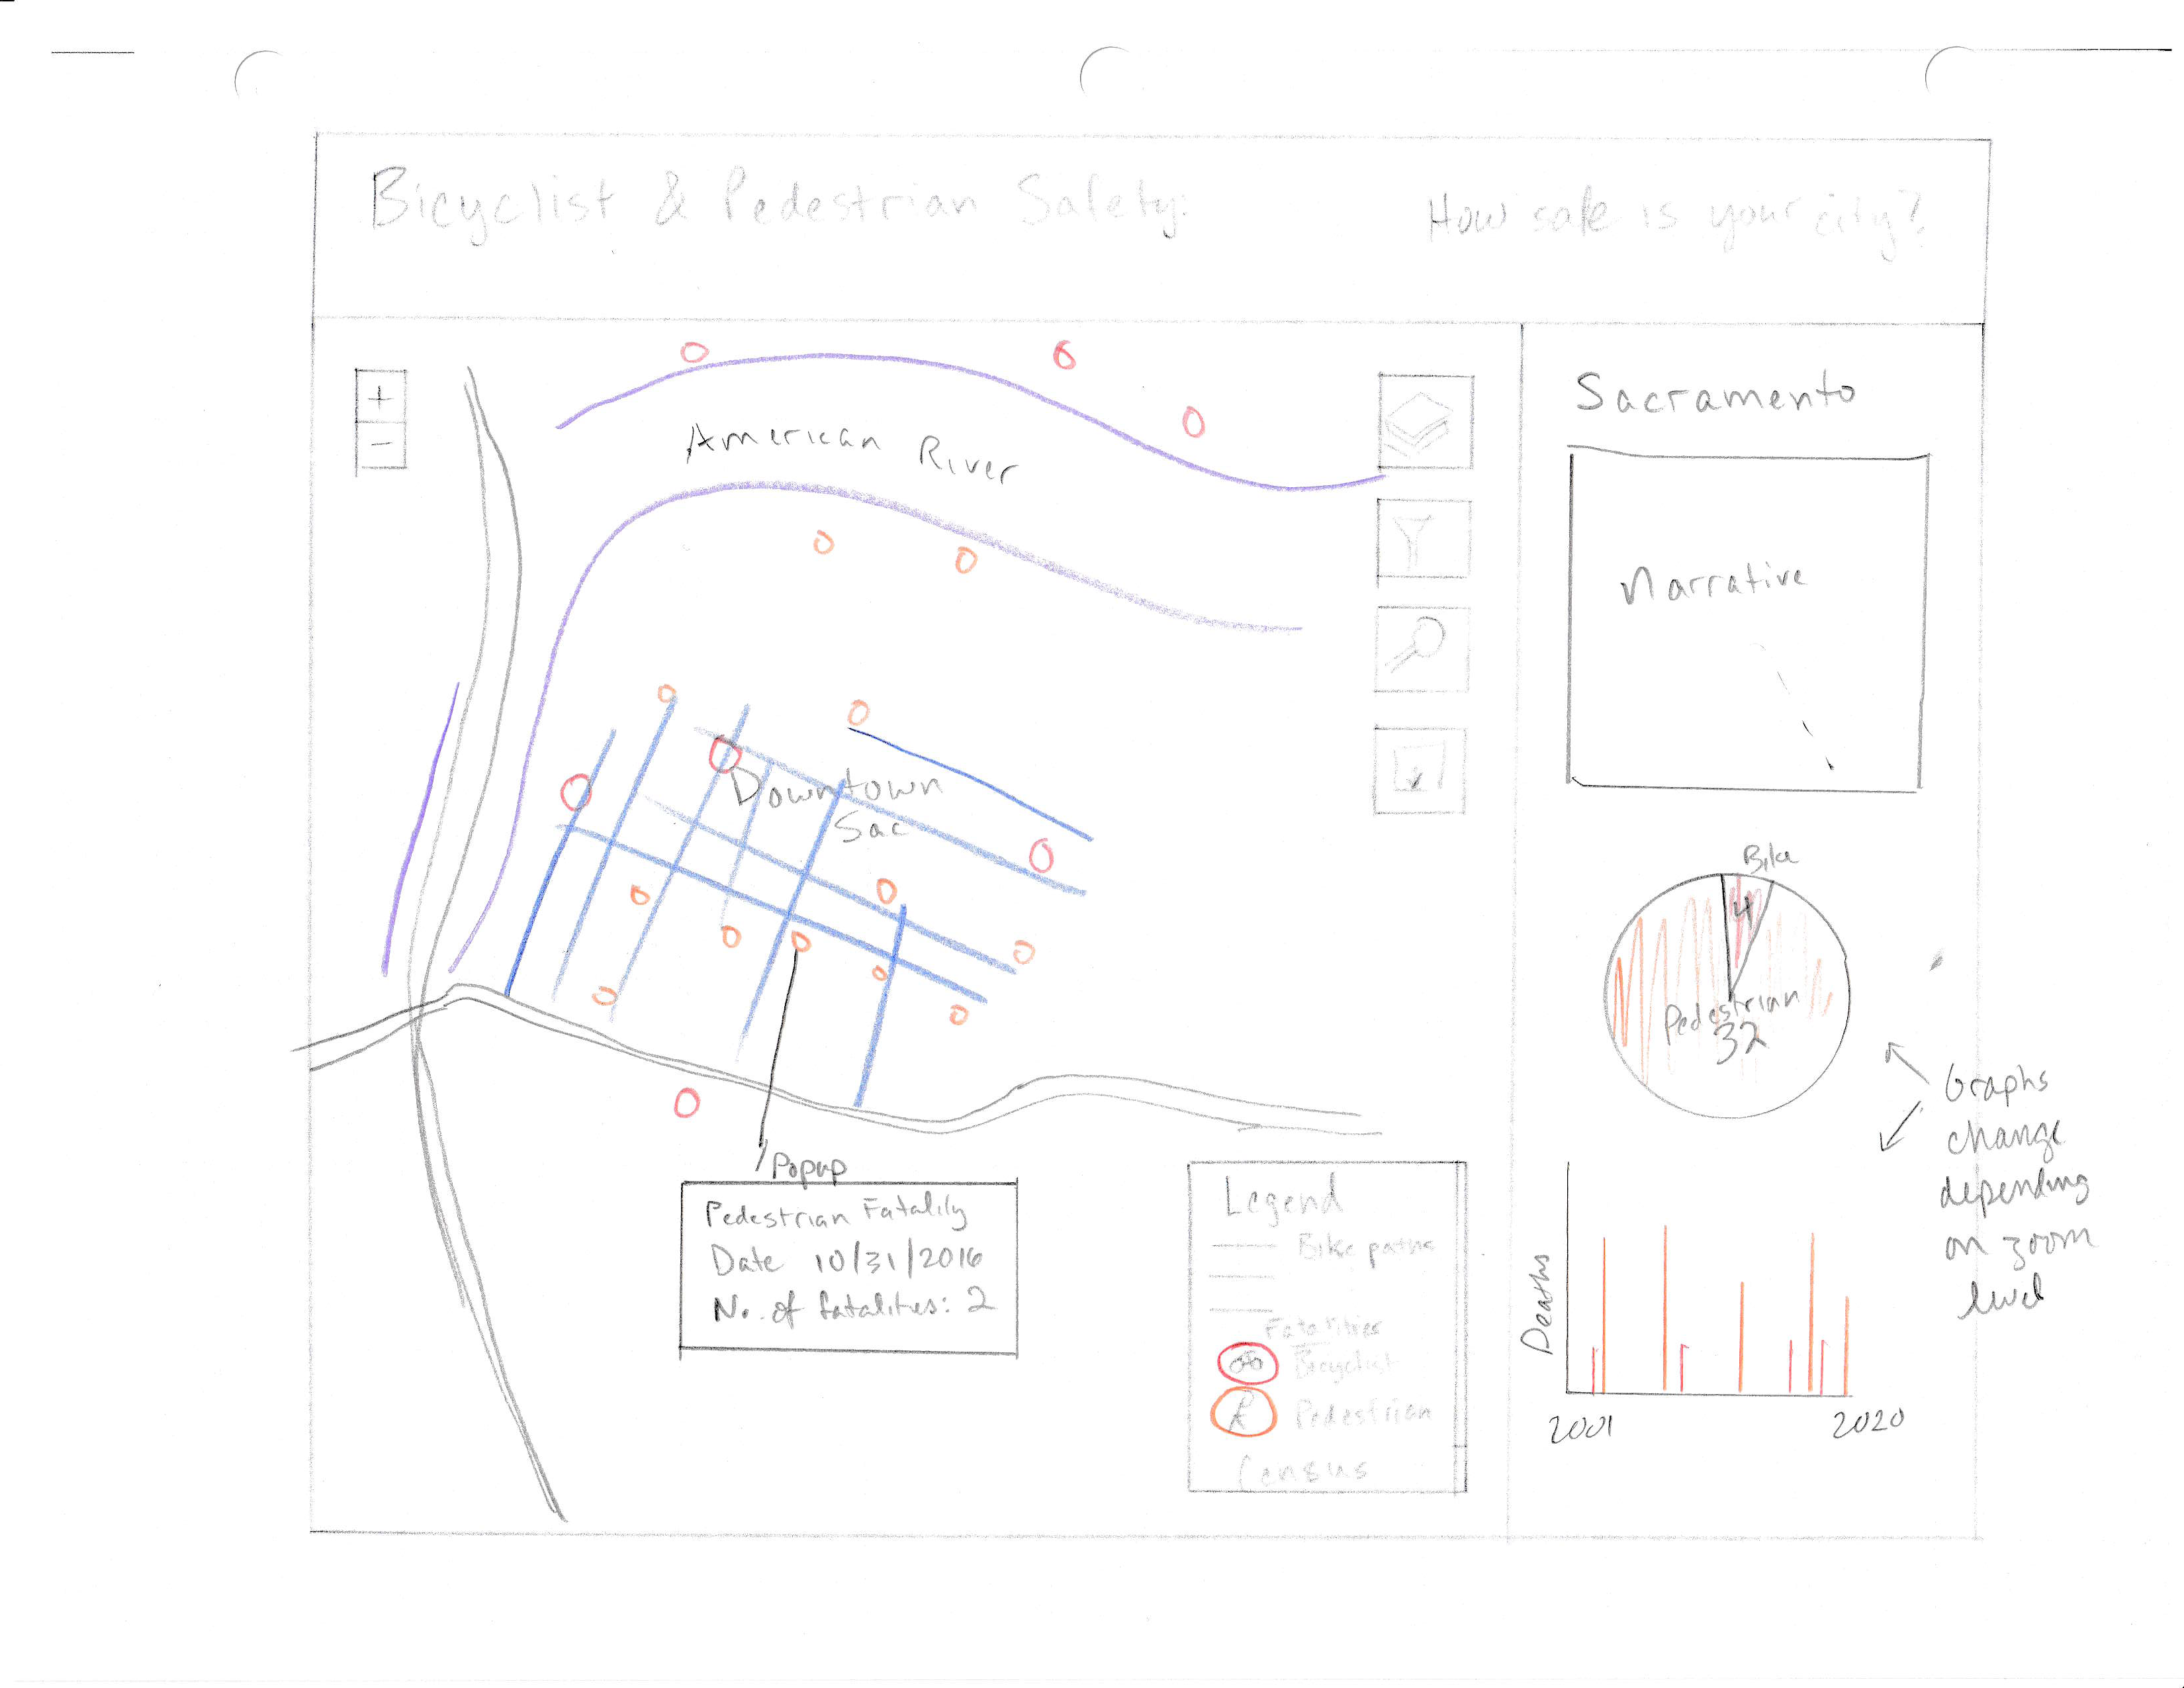 Bicyclist & Pedestrian Safety:
How safe is your city?
+
−
American River
Downtown
Sac
Popup
Pedestrian Fatality
Date 10/31/2016
No. of fatalities: 2
Legend
Bike paths
Fatalities
Bicyclist
Pedestrian
Census
Sacramento
Narrative
Bike
4
Pedestrian
32
Graphs
change
depending
on zoom
level
Deaths
2001
2020